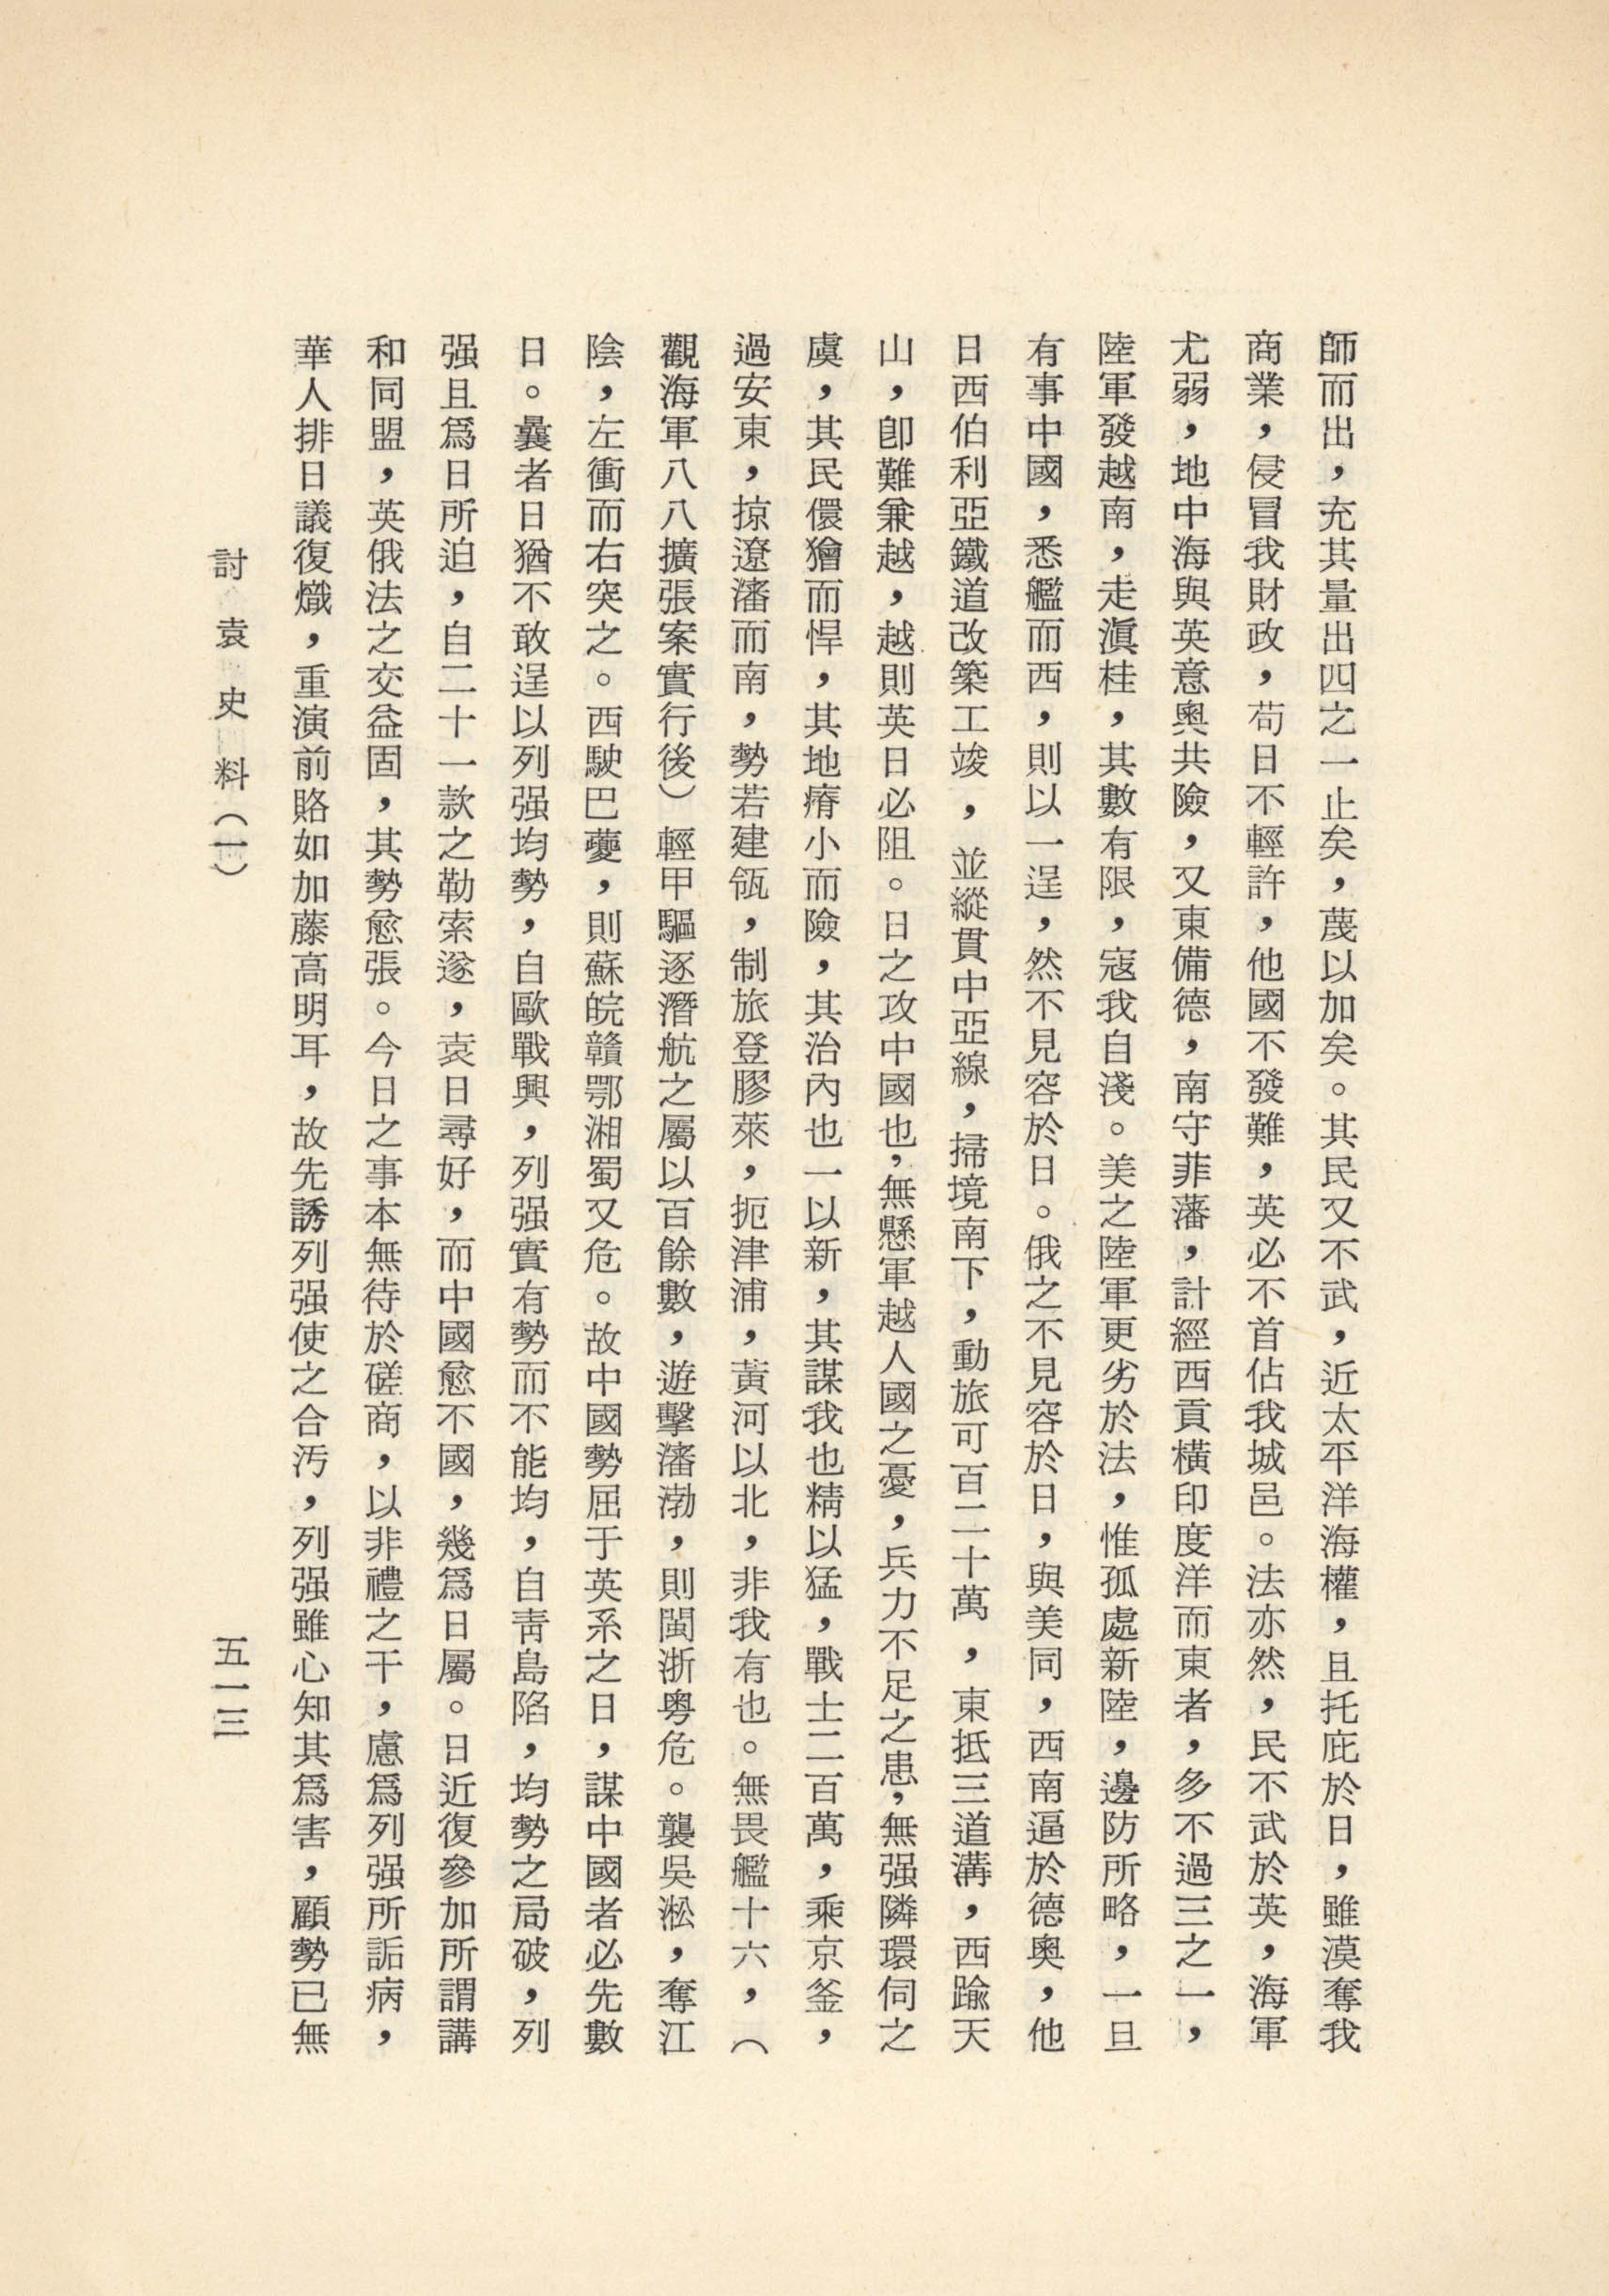 師而出，充其量出四之一止矣，蔑以加矣。其民又不武，近太平洋海權，且托庇於日，雖漠奪我
商業，侵冒我財政，苟日不輕許，他國不發難，英必不首佔我城邑。法亦然，民不武於英，海軍
尤弱，地中海與英意奧共險，又東備德，南守菲藩，計經西貢橫印度洋而東者，多不過三之一，
陸軍發越南，走滇桂，其數有限，寇我自淺。美之陸軍更劣於法，惟孤處新陸，邊防所略，一旦
有事中國，悉艦而西，則以一逞，然不見容於日。俄之不見容於日，與美同，西南逼於德奧，他
日西伯利亞鐵道改築工竣，並縱貫中亞線，掃境南下，動旅可百二十萬，東抵三道溝，西踰天
山，卽難兼越，越則英日必阻。日之攻中國也，無懸軍越人國之憂，兵力不足之患，無强隣環伺之
虞，其民儇獪而悍，其地瘠小而險，其治內也一以新，其謀我也精以猛，戰士二百萬，乘京釜，
過安東，掠遼瀋而南，勢若建瓴，制旅登膠萊，扼津浦，黃河以北，非我有也。無畏艦十六，（
觀海軍八八擴張案實行後）輕甲驅逐潛航之屬以百餘數，遊擊瀋渤，則閩浙粵危。襲吳淞，奪江
陰，左衝而右突之。西駛巴夔，則蘇皖贛鄂湘蜀又危。故中國勢屈于英系之日，謀中國者必先數
日。曩者日猶不敢逞以列强均勢，自歐戰興，列强實有勢而不能均，自靑島陷，均勢之局破，列
强且爲日所迫，自二十一款之勒索遂，袁日尋好，而中國愈不國，幾爲日屬。日近復參加所謂講
和同盟，英俄法之交益固，其勢愈張。今日之事本無待於磋商，以非禮之干，慮爲列强所詬病，
華人排日議復熾，重演前賂如加藤高明耳，故先誘列强使之合汚，列强雖心知其爲害，顧勢已無
討袁史料（一）
五一三